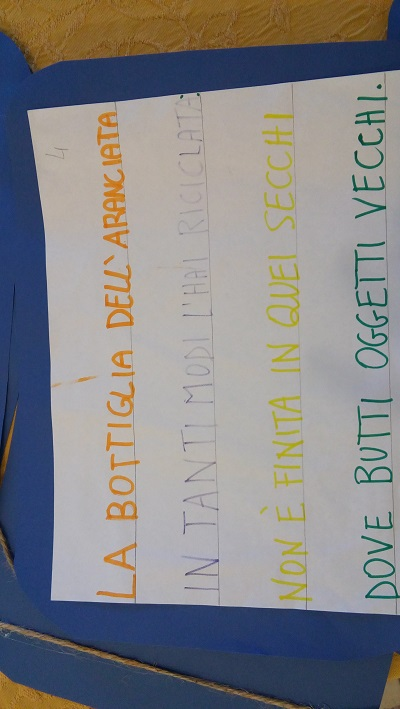 4
LA BOTTIGLIA DELL'ARANCIATA
IN TANTI MODI L'HAI RICICLATA:
NON È FINITA IN QUEI SECCHI
DOVE BUTTI OGGETTI VECCHI.